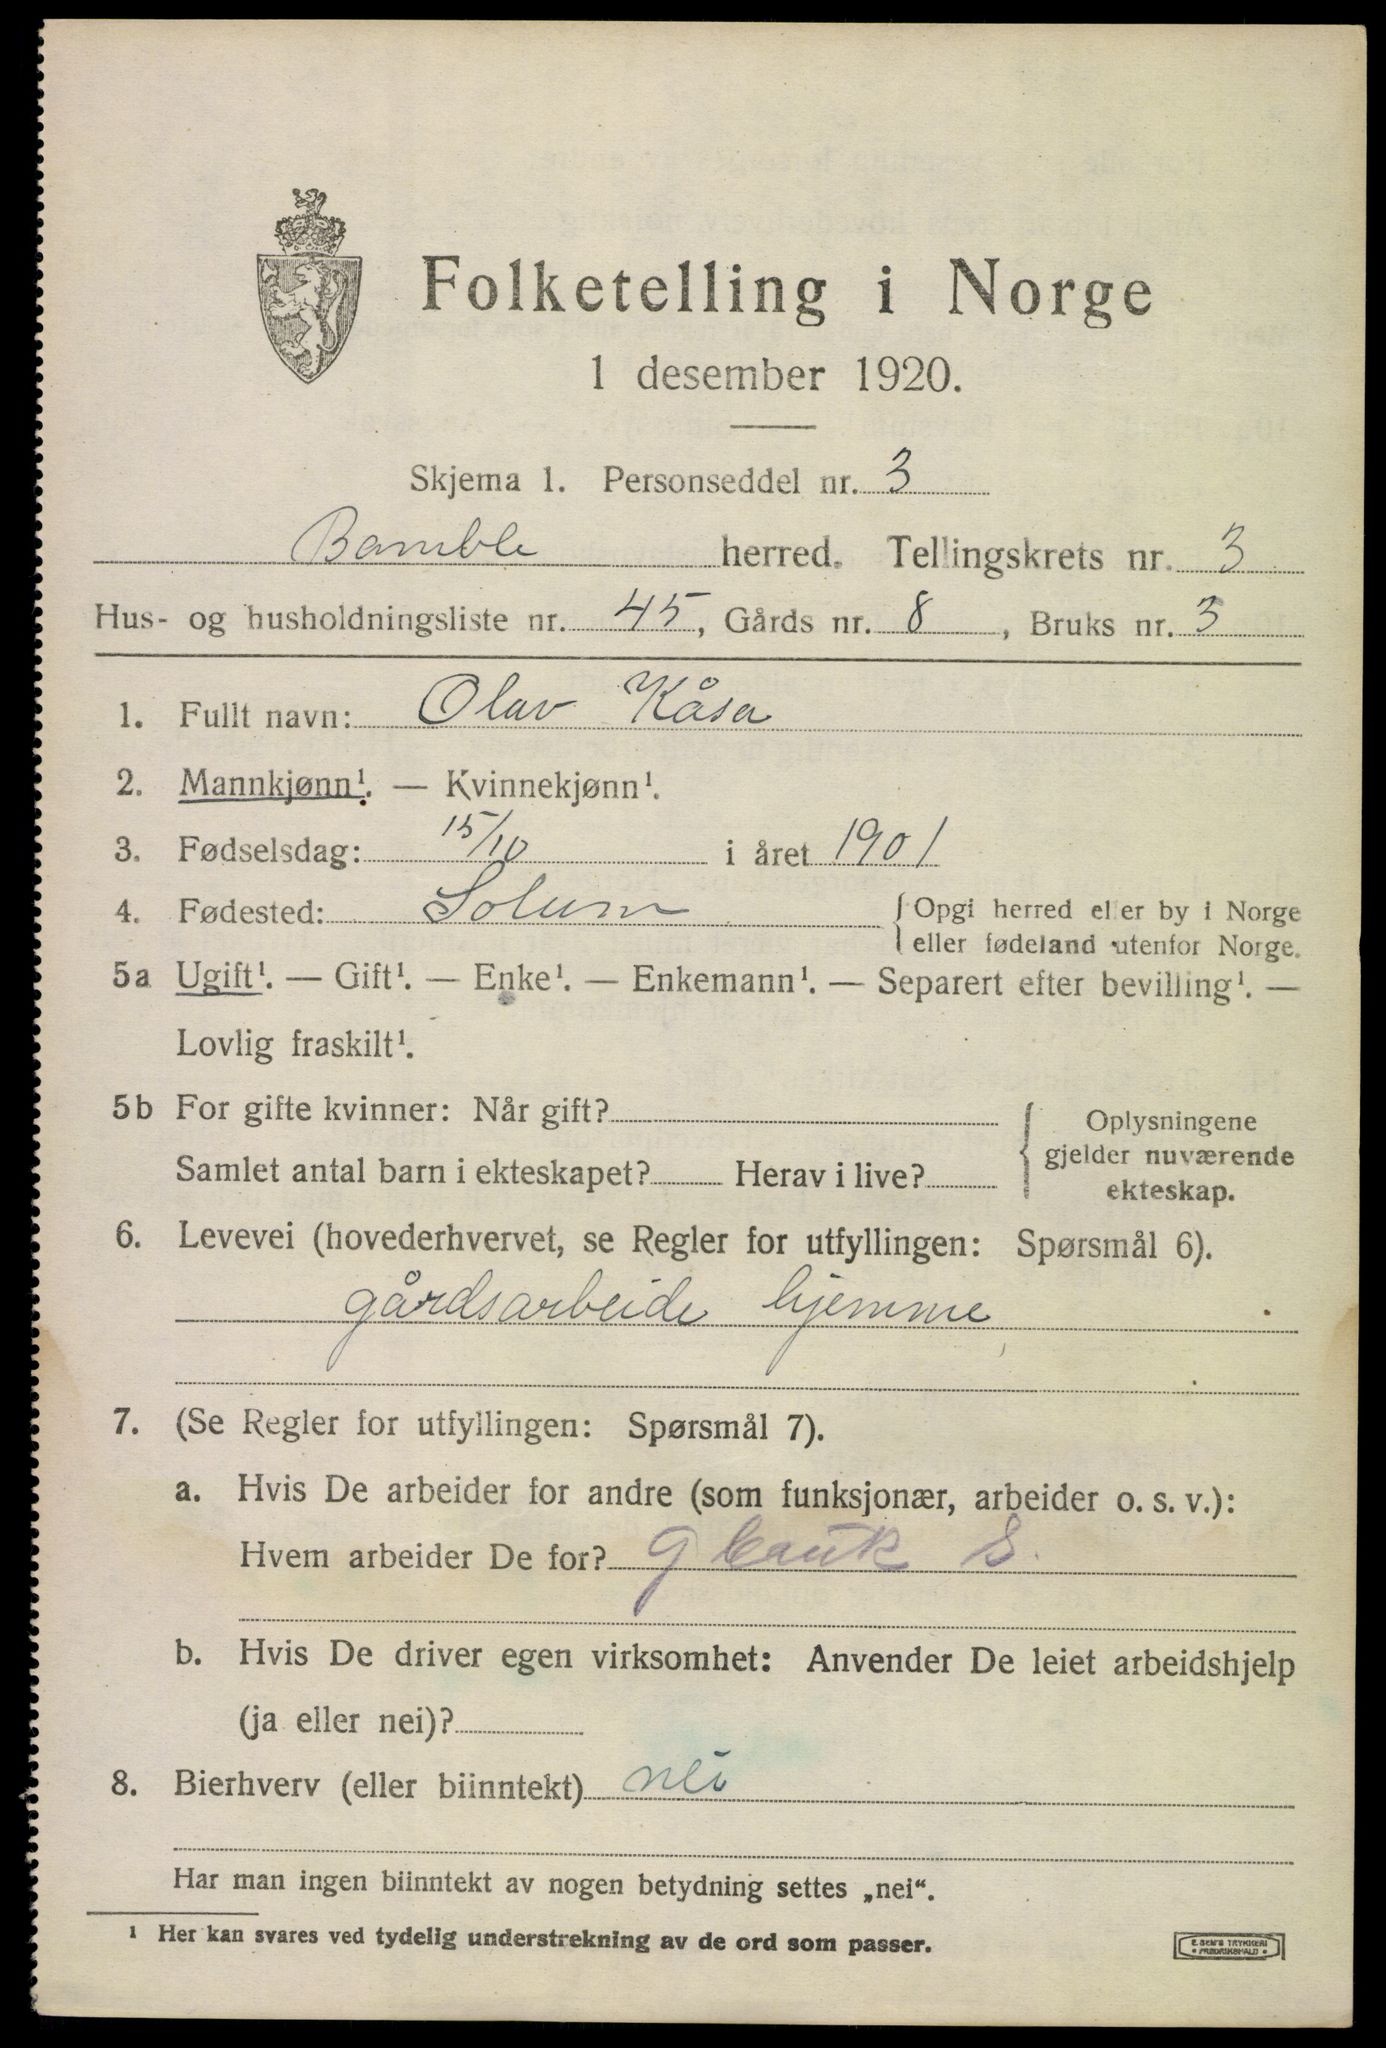 Folketelling i Norge
1 desember 1920.
Skjema 1. Personseddel nr. 3
Bamble herred. Tellingskrets nr. 3
Hus- og husholdningsliste nr. 45, Gårds nr. 8, Bruks nr. 3
1. Fullt navn: Olav Kåsa
2. Mannkjønn¹. — Kvinnekjønn¹.
3. Fødselsdag: 15/10 i året 1901
4. Fødested: Solum { Opgi herred eller by i Norge
eller fødeland utenfor Norge.
5a Ugift¹. — Gift¹. — Enke¹. — Enkemann¹. — Separert efter bevilling¹. —
Lovlig fraskilt¹.
5b For gifte kvinner: Når gift? { Oplysningene
gjelder nuværende
ekteskap.
Samlet antal barn i ekteskapet? Herav i live?
6. Levevei (hovederhvervet, se Regler for utfyllingen: Spørsmål 6).
gårdsarbeide hjemme
7. (Se Regler for utfyllingen: Spørsmål 7).
a. Hvis De arbeider for andre (som funksjonær, arbeider o. s. v.):
Hvem arbeider De for?
b. Hvis De driver egen virksomhet: Anvender De leiet arbeidshjelp
(ja eller nei)?
8. Bierhverv (eller biinntekt) nei
Har man ingen biinntekt av nogen betydning settes „nei“.
¹ Her kan svares ved tydelig understrekning av de ord som passer.
E. SEM'S TRYKKERI
• FREDRIKSHALD •